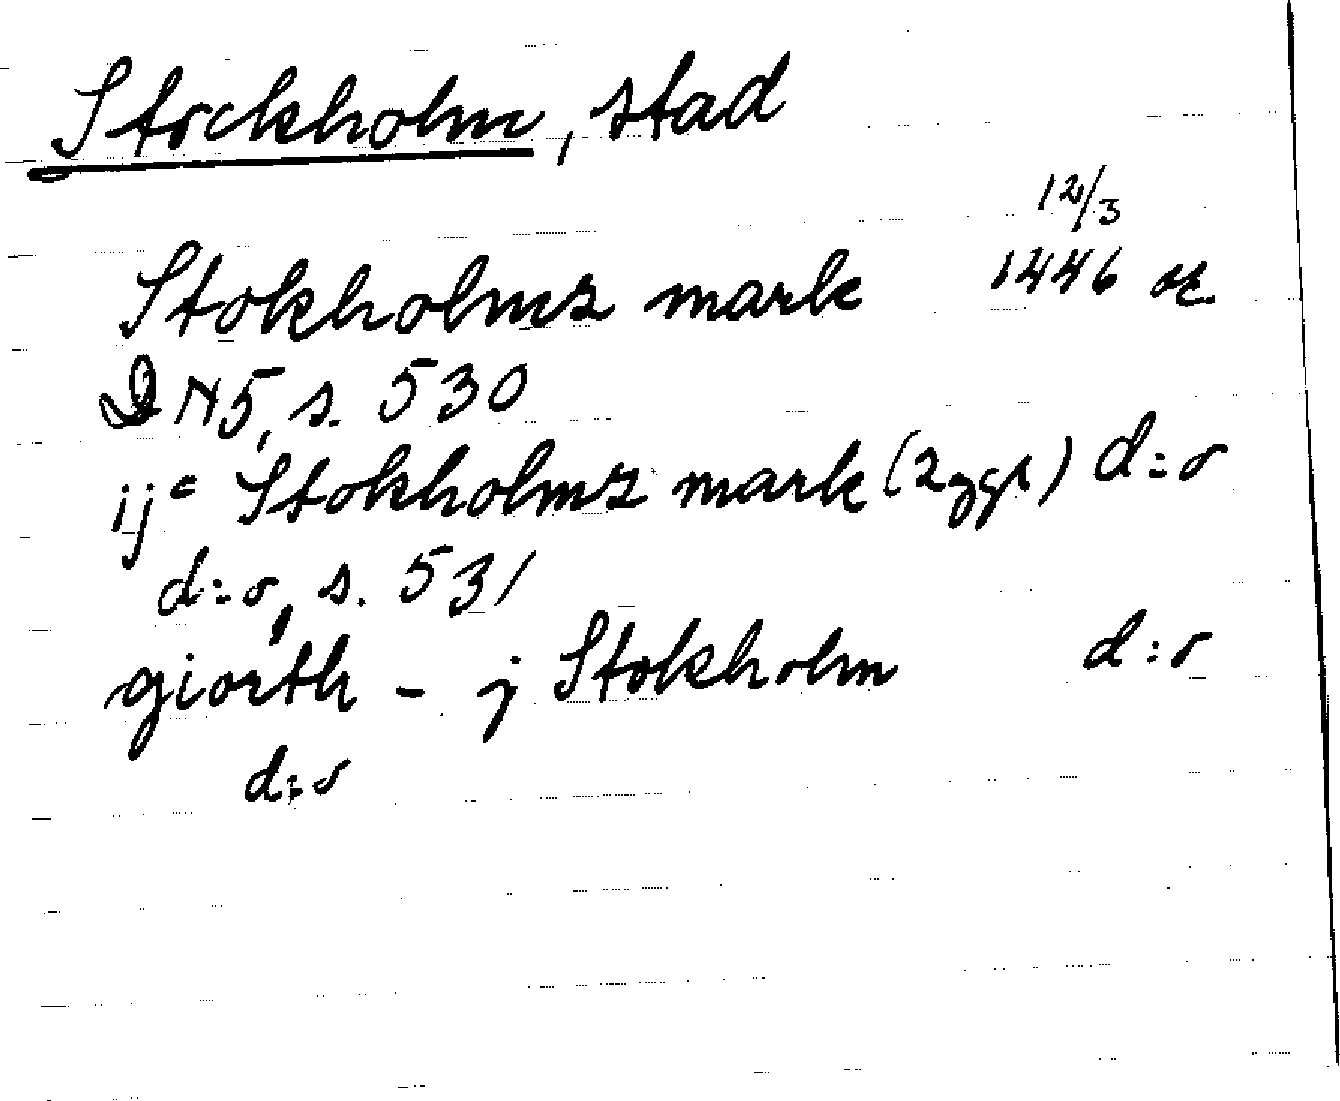 Stockholm, stad
12/3
Stokholms mark 1446 or.
DN5, s. 530
ijᶜ Stokholms mark (2 ggr) d:o
d:o, s. 531
giorth - j Stokholm d:o
d:o